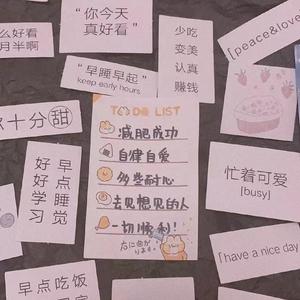 么好看
月半啊
“你今天
真好看”
少吃
变美
认真
赚钱
[peace&love
“早睡早起”
keep early hours
十分甜
TO DO LIST
减肥成功
自律自爱
多些耐心
去见想见的人
一切顺利！
右に曲が
ります
好好学习
早点睡觉
忙着可爱
[busy]
[have a nice day
早点吃饭